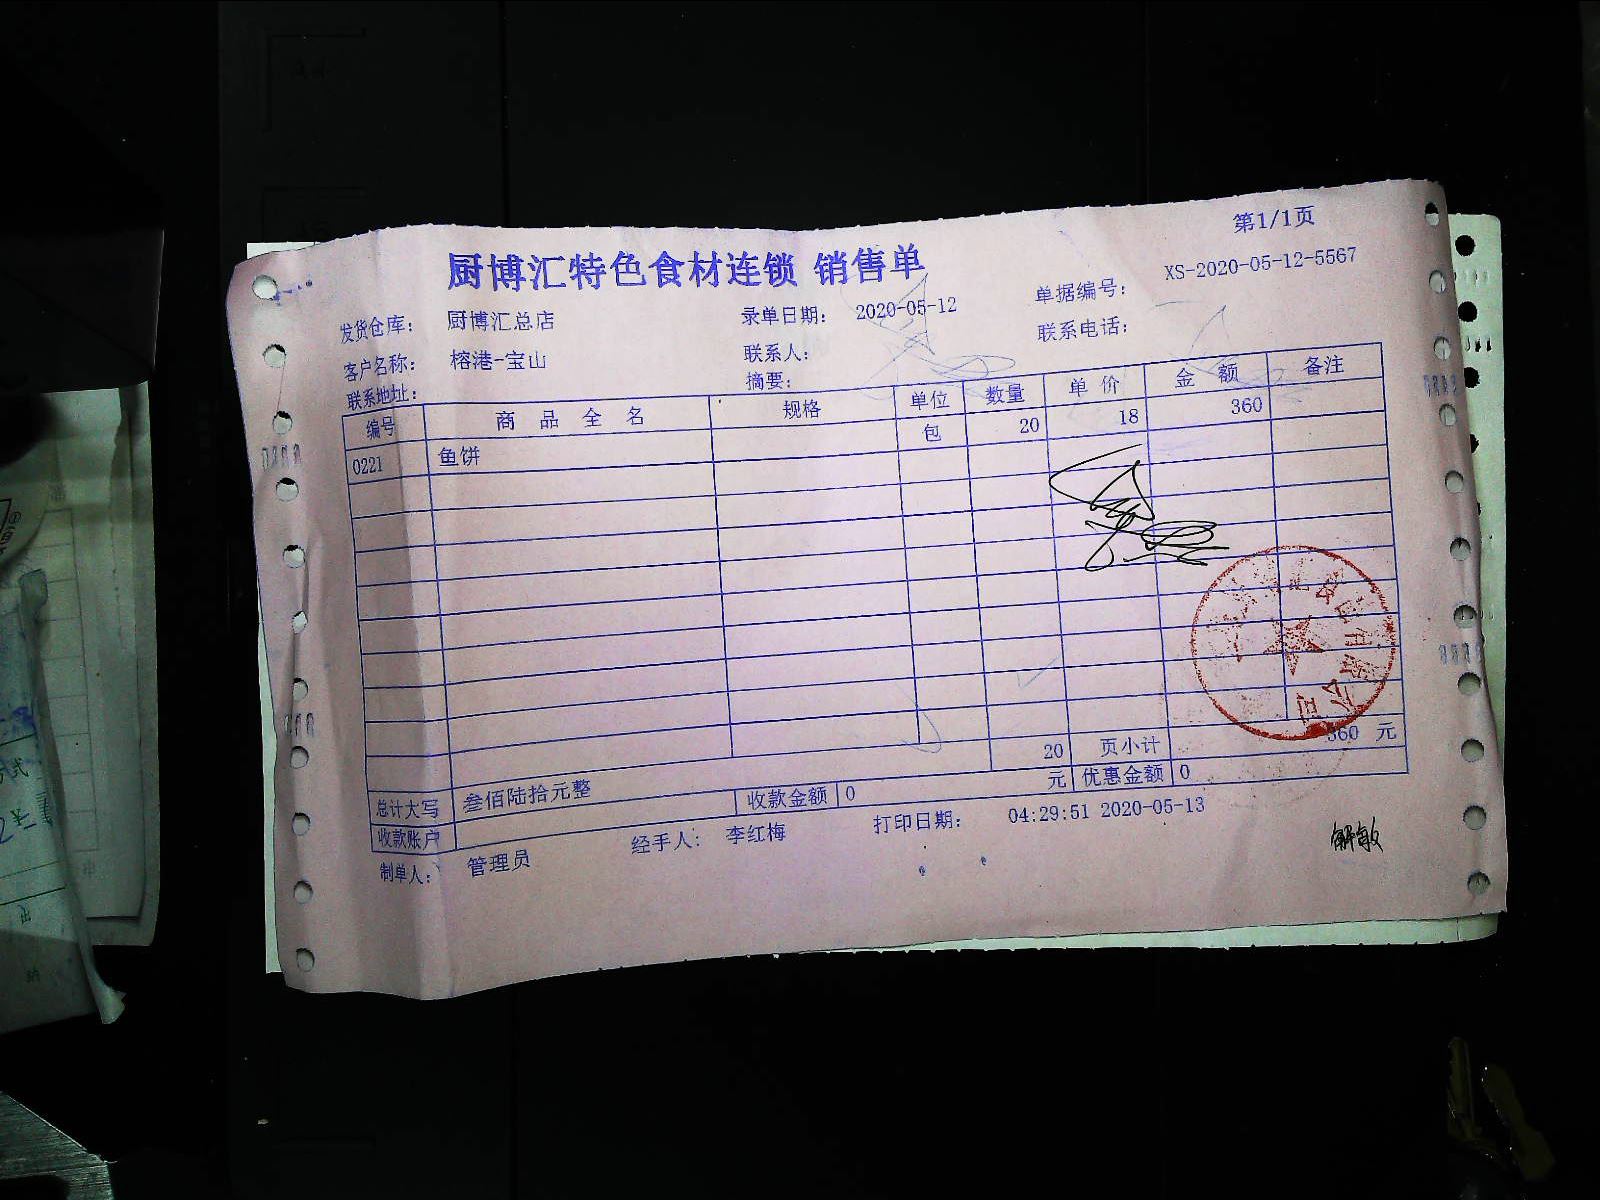 第1/1页
厨博汇特色食材连锁 销售单
发货仓库： 厨博汇总店 录单日期： 2020-05-12 单据编号： XS-2020-05-12-5567
客户名称： 榕港-宝山 联系人： 联系电话：
联系地址： 摘要：
编号 商品全名 规格 单位 数量 单价 金额 备注
0221 鱼饼 包 20 18 360
20 页小计 360 元
总计大写 叁佰陆拾元整 收款金额 0 元 优惠金额 0
收款账户
制单人： 管理员 经手人： 李红梅 打印日期： 04:29:51 2020-05-13